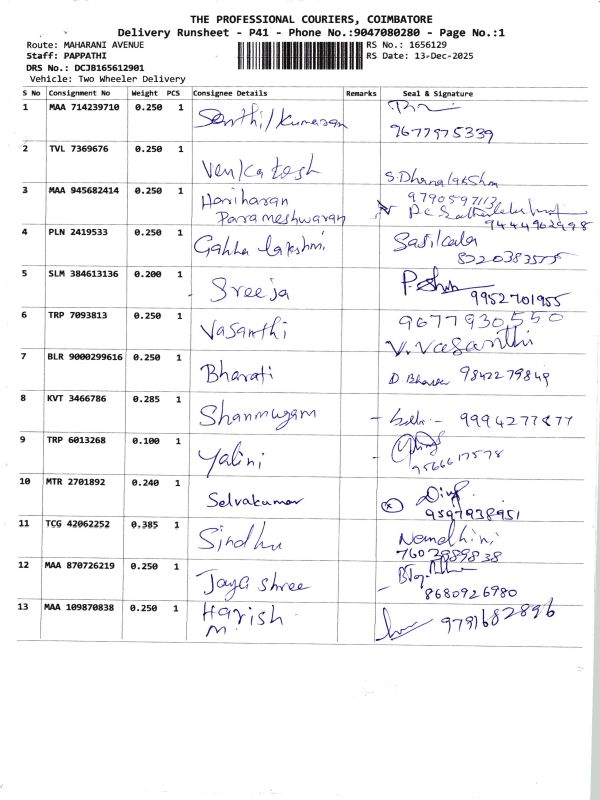 THE PROFESSIONAL COURIERS, COIMBATORE
Delivery Runsheet - P41 - Phone No.:9047080280 - Page No.:1
Route: MAHARANI AVENUE RS No.: 1656129
Staff: PAPPATHI RS Date: 13-Dec-2025
DRS No.: DCJB165612901
Vehicle: Two Wheeler Delivery
S No Consignment No Weight PCS Consignee Details Remarks Seal & Signature
1 MAA 714239710 0.250 1 Senthil kumaran
9677975339
2 TVL 7369676 0.250 1 Venkatesh S. Dhanalakshmi
9790597113
3 MAA 945682414 0.250 1 Hariharan
Parameshwaran
9444962998
4 PLN 2419533 0.250 1 Gahha lakshmi Sasikala
8220383575
5 SLM 384613136 0.200 1 Sreeja
9952701955
6 TRP 7093813 0.250 1 Vasanthi 9677930550
V. Vasanthi
7 BLR 9000299616 0.250 1 Bharati D. Bharati 9842279849
8 KVT 3466786 0.285 1 Shanmugam 9994277877
9 TRP 6013268 0.100 1 Yalini
9566617578
10 MTR 2701892 0.240 1 Selvakumar
9597938951
11 TCG 42062252 0.385 1 Sindhu Nandhini
7602989838
12 MAA 870726219 0.250 1 Jaya shree
8680926980
13 MAA 109870838 0.250 1 Harish
M. 9791682896